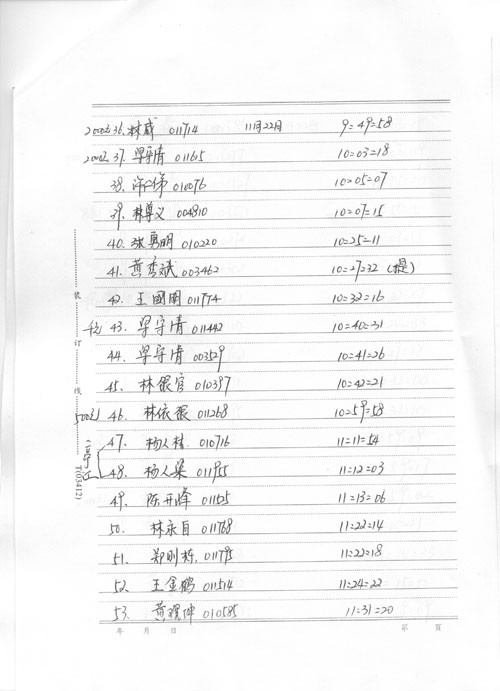 2000元 36. 林威 011714 11月22日 9=49=58
2000元 37. 梁守清 011615 10=03=18
38. 010076 10=05=07
39. 林尊义 004810 10=07=15
40. 张勇明 010220 10=25=11
41. 黄秀斌 003462 10=27=32 (提)
42. 王国团 011774 10=32=16
千元 43. 梁守清 011442 10=40=31
44. 梁守清 003529 10=41=26
45. 林银官 010397 10=42=21
500元 46. 林依银 011268 10=59=58
47. 杨人桂 010716 11=11=54
48. 杨人梁 011955 11=12=03
49. 陈开峰 011525 11=13=06
50. 林永自 011768 11=22=14
51. 郑刚 011795 11=22=18
52. 王金鹤 011514 11=24=22
53. 黄 坤 010585 11=31=20
装 订 线
T(03412)
年 月 日 第 页